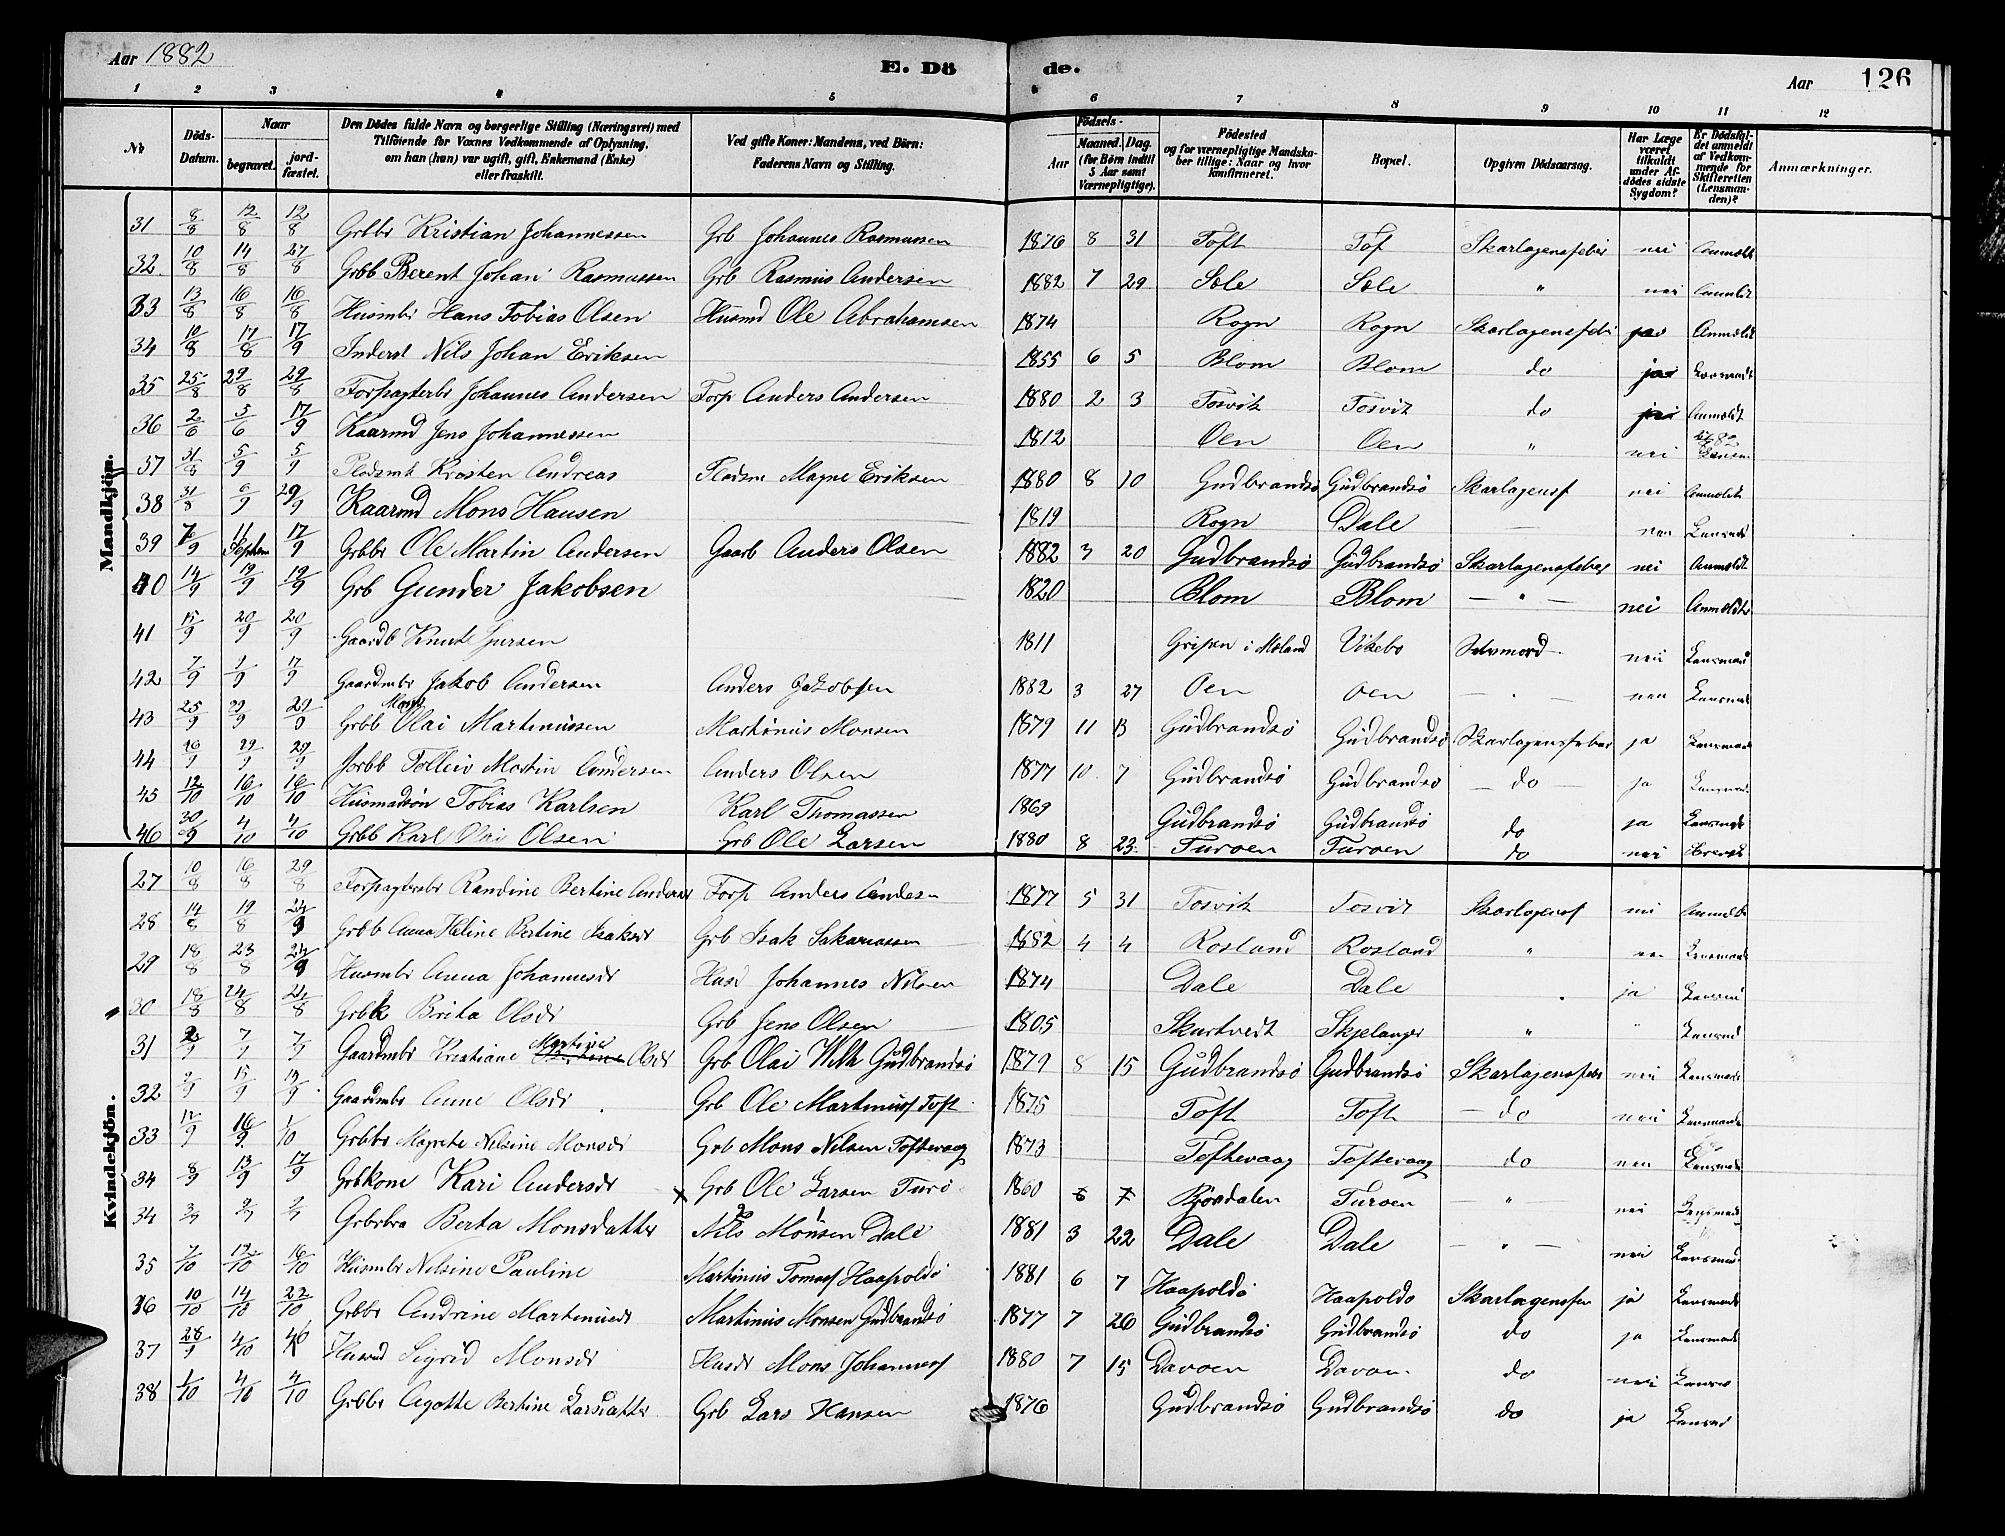 Aar 1882
E. Dö de.
Aar 126
1 2 3 4 5 6 7 8 9 10 11 12
No
Döds-Datum.
Naar
begravet.
jord-fæstet.
Den Dödes fulde Navn og borgerlige Stilling (Næringsvei) med
Tilföiende for Voxnes Vedkommende af Oplysning,
om han (hun) var ugift, gift, Enkemand (Enke)
eller fraskilt.
Ved gifte Koner: Mandens, ved Börn:
Faderens Navn og Stilling.
Födsels-
Aar
Maaned.
Dag.
(for Børn indtil
5 Aar samt
Værnepligtige).
Födested
og for værnepligtige Mandska-
ber tillige: Naar og hvor
konfirmeret.
Bopæl.
Opgiven Dödsaarsag.
Har Læge
været
tilkaldt
under Af-
dödes sidste
Sygdom?
Er Dödsfal-
det anmeldt
af Vedkom-
mende for
Skifteretten
(Lensman-
den)?
Anmærkninger.
Mandkjön.
31 8/8 12/8 12/8 Grbbr Kristian Johannessen Grb Johannes Rasmussen 1876 8 31 Toft Tof Skarlagensfeber nei Anmeldt
32 10/8 14/8 27/8 Grbb Berent Johan Rasmussen Grb Rasmus Andersen 1882 7 29 Sole Sole " nei Anmeldt
33 13/8 16/8 16/8 Husmbr Hans Tobias Olsen Husmd Ole Abrahamsen 1874 Rogn Rogn Skarlagensfebr ja Anmeldt
34 10/8 17/8 17/9 Inderst Nils Johan Eriksen 1855 6 5 Blom Blom do ja
35 25/8 29/8 29/8 Forpagterbr Johannes Andersen Forp Anders Andersen 1880 2 3 Tosvik Tosvik do Anmeldt
36 2/6 5/6 17/9 Kaarmd Jens Johannessen 1812 Oen Oen " nei
37 31/8 5/9 5/9 Pladsmb Krosten Andreas Pladsm Magne Eriksen 1880 8 10 Gudbrandsö Gudbrandsö Skarlagensf nei Anmeldt
38 31/8 6/9 29/9 Kaarmd Mons Hansen 1819 Rogn Dale — Lensmd
39 7/9 11 Septbr 17/9 Grbbr Ole Martin Andersen Gaarb Anders Olsen 1882 3 20 Gudbrandsö Gudbrandsö Skarlagensfeber nei Anmeldt
40 14/9 19/9 19/9 Grb Gunder Jakobsen 1820 Blom Blom — " — nei Anmeldt
41 15/9 20/9 20/9 Gaardb Knut Iversen 1811 Gripen i Moland Vikebo Selvmord nei Lensmd
42 7/9 17/9 Gaardmbr Jakob Andersen Anders Jakobsen 1882 3 27 Oen Oen — " — Lensmd
43 25/9 29/9 29/9 Grbb Mons Olai Martinussen Martinus Monsen 1879 11 13 Gudbrandsö Gudbrandsö Skarlagensfeber ja Lensmd
44 16/9 29/9 29/9 Tolleiv Martin Andersen Anders Olsen 1877 10 7 Gudbrandsö Gudbrandsö — do — ja Lensmd
45 12/10 16/10 16/10 Husmadsön Tobias Karlsen Karl Thomassen 1869 Gudbrandsö Gudbrandsö do ja Lensmd
46 30/9 4/10 4/10 Grbb Karl Olai Olsen Grb Ole Larsen 1880 8 23 Turoen Turoen do nei
Kvindekjön.
27 10/8 16/8 29/8 Forpagterbr Randine Bertine Andersd Forp Anders Andesn 1877 5 31 Tosvik Tosvik Skarlagensf Anmeldt
28 14/8 19/8 24/9 Grbb Anna Heline Bertine Isaksdr Grb Isak Sakariassen 1882 4 4 Rosland Rosland " Lensmd
29 18/8 23/8 24/9 Husmbr Anna Johannesdr Husd Johannes Nilsen 1874 Dale Dale ja Lensmd
30 18/8 24/8 24/8 Grbk Brita Olsdr Grb Jens Olsen 1805 Skurtvedt Skjelanger " " Lensmd
31 7/9 7/9 Gaardmbr Kristiane Martine Olsdr Grb Olai Gudbrandsö 1879 8 15 Gudbrandsö Gudbrandsö Skarlagensfeber nei Lensmd
32 15/9 Gaardmbr Anne Olsdr Grb Ole Martinus Toft 1875 Toft Toft — do nei Lensmd
33 12/9 16/9 1/10 Grbbr Magrete Nilsine Monsdr Grb Mons Nilsen Toftevaag 1873 Toftevaag Toftevaag do Lensmd
34 8/9 13/9 17/9 Grbkone Kari Andersdr x Grb Ole Larsen Turö 1860 6 7 Turoen — " nei Lensmd
34 Grbrbra Berta Monsdatter Nils Monsen Dale 1881 3 22 Dale Dale — " — nei Lensmd
35 7/10 12/10 16/10 Husmbr Nilsine Pauline Martinus Haapoldö 1881 6 7 Haapoldö Haapoldo Skarlagensfer ja Lensmd
36 10/10 14/10 22/10 Grbbr Andrine Martinusdr Martinus Monsen Gudbrandsö 1877 7 26 Gudbrandsö Gudbrandsö do ja Lensmd
37 28/9 4/10 Husmd Sigrid Monsdr Husdr Mons Johannesf 1880 7 15 Davoen Davoen do nei Lensm
38 1/10 4/10 4/10 Grbbr Agotte Bertine Larsdatter Grb Lars Hansen 1876 Gudbrandsö Gudbrandsö do ja Lensmd